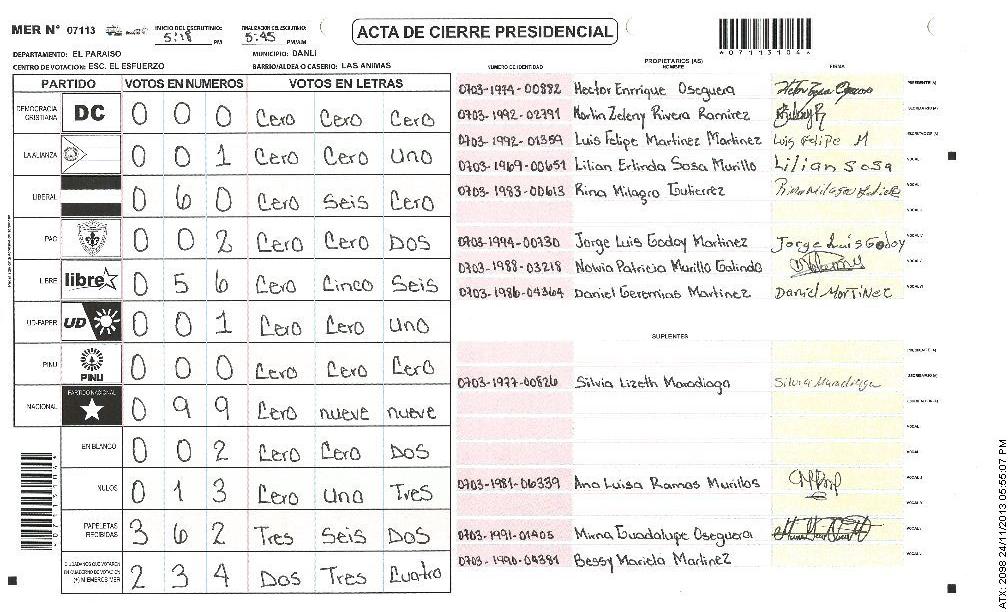 MER N° 07113
INICIO DEL ESCRUTINIO: 5:18 PM
FINALIZACION DEL ESCRUTINIO: 5:45 PM/AM
ACTA DE CIERRE PRESIDENCIAL
407113104
DEPARTAMENTO: EL PARAISO
MUNICIPIO: DANLÍ
CENTRO DE VOTACION: ESC. EL ESFUERZO
BARRIO/ALDEA O CASERIO: LAS ANIMAS
PARTIDO VOTOS EN NUMEROS VOTOS EN LETRAS
DEMOCRACIA CRISTIANA DC 0 0 0 Cero Cero Cero
LA ALIANZA 0 0 1 Cero Cero Uno
LIBERAL 0 6 0 Cero Seis Cero
PAC 0 0 2 Cero Cero Dos
LIBRE libre 0 5 6 Cero Cinco Seis
UD-FAPER UD 0 0 1 Cero Cero Uno
PINU PINU 0 0 0 Cero Cero Cero
NACIONAL PARTIDO NACIONAL 0 9 9 Cero nueve nueve
EN BLANCO 0 0 2 Cero Cero Dos
NULOS 0 1 3 Cero Uno Tres
PAPELETAS RECIBIDAS 3 6 2 Tres Seis Dos
CIUDADANOS QUE VOTARON EN CUADERNO DE VOTACION (+) MIEMBROS MER 2 3 4 Dos Tres Cuatro
PROPIETARIOS (AS)
NUMERO DE IDENTIDAD NOMBRE FIRMA
0703-1994-00882 Hector Enrrique Oseguera PRESIDENTE (A)
0703-1992-02791 Martin Zeleny Rivera Ramirez SECRETARIO (A)
0703-1992-01359 Luis Felipe Martinez Martinez Luis Felipe M
0703-1969-00651 Lilian Erlinda Sosa Murillo Lilian Sosa
0703-1983-00613 Rina Milagro Gutierrez
0703-1994-00730 Jorge Luis Godoy Martinez Jorge Luis Godoy
0703-1988-03218 Nolvia Patricia Murillo Galindo
0703-1986-04364 Daniel Geremias Martinez Daniel Martinez
SUPLENTES
PRESIDENTE (A)
0703-1977-00826 Silvia Lizeth Maradiaga Silvia Maradiaga SECRETARIO (A)
0703-1981-06339 Ana Luisa Ramos Murillos
0703-1991-01405 Mirna Guadalupe Oseguera
0703-1990-04381 Bessy Mariela Martinez
ATX: 2098 24/11/2013 05:55:07 PM